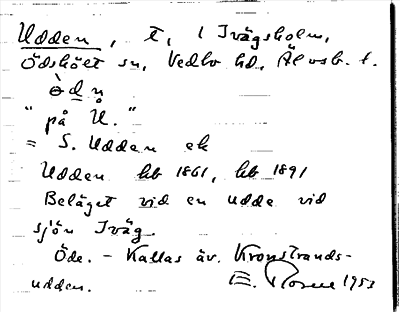 Udden, t, 1 Ivägsholm,
Ödskölt sn, Vedbo hd, Älvsb. l.
òdn
"på U."
= S. Udden ek
Udden hb 1861, hb 1891
Beläget vid en udde vid
sjön Iväg.
Öde. - Kallas äv. Kronstrands-
udden. E. Rosell 1953